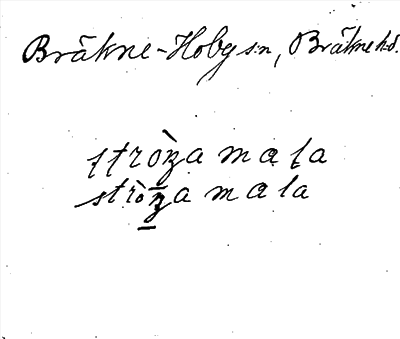 Bräkne-Hoby sn, Bräkne hd.
stròza mala
stròza mala